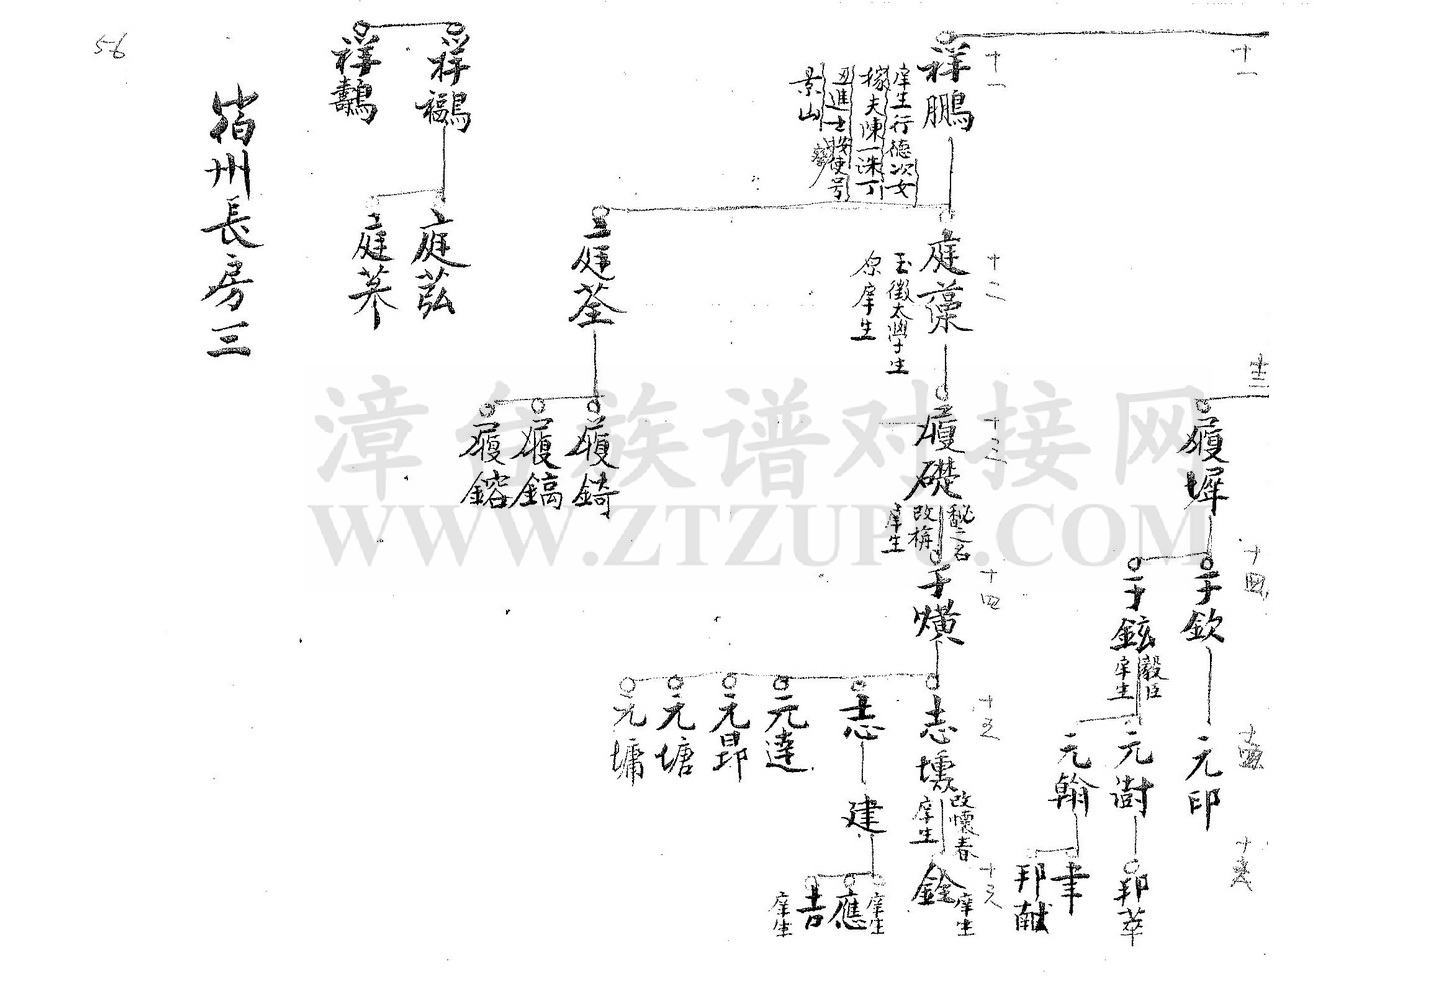 十一
十三
十四
履墀
于欽
元印
于鉉
毅臣
庠生
元澍
邦萃
元翰
聿
邦献
十一
祥鵬
庠生行德次女
嫁夫陳一洙丁
丑進士按使号
景山
十二
庭藻
玉徵太學生
原庠生
十三
履礎
秘之名
改楠
庠生
十四
于熿
十五
志壎
改懷春
庠生
十六
銓
庠生
志
建
庠生
應
吉
庠生
元達
元昂
元塘
元墉
庭荃
履錡
履鎬
履鎔
祥鶝
庭苰
祥鸛
庭菶
宿州長房三
56
漳台族谱对接网
WWW.ZTZUPU.COM